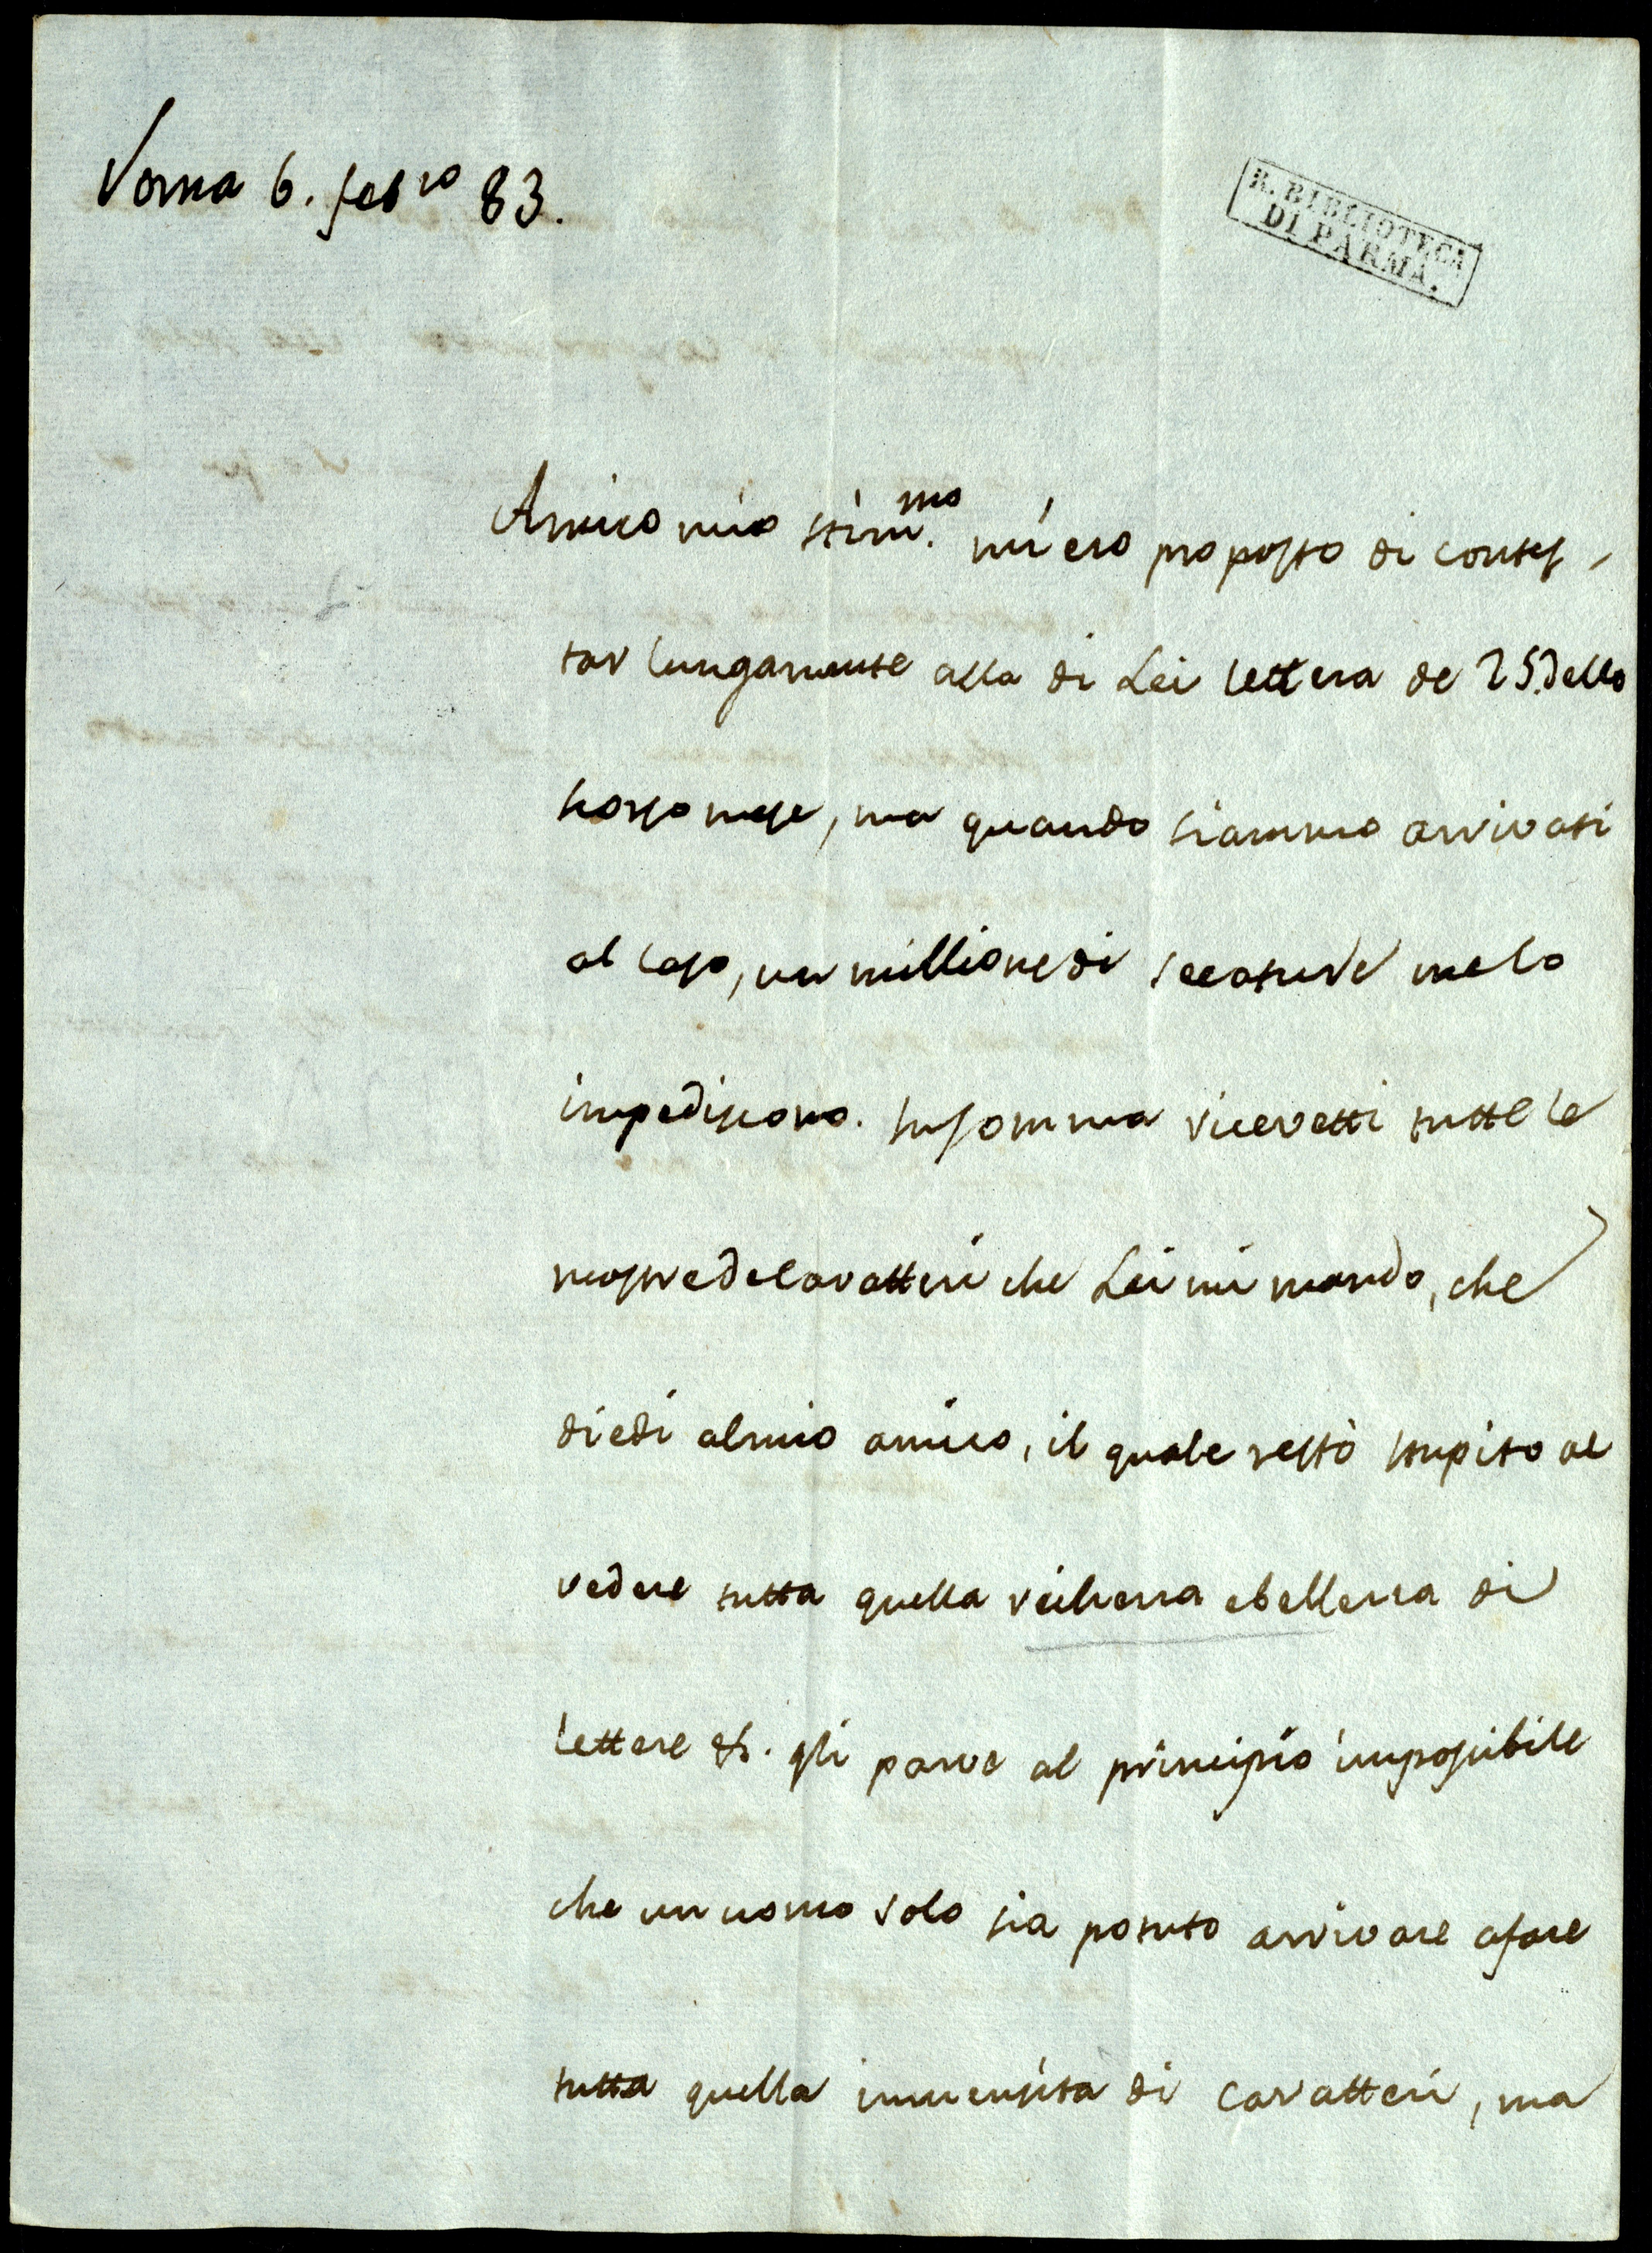 Roma 6. febro 83.
R. BIBLIOTECA
DI PARMA.
Amico mio stimmo. mi ero proposto di contes-
tar lungamente alla di Lei lettera de 25. dello
scorso mese, ma quando siammo arrivati
al caso, un millione di seccature me lo
impediscono. Insomma ricevetti tutte le
mostre de caratteri che Lei mi mando, che
diedi al mio amico, il quale restò stupito al
vedere tutta quella richezza e bellezza di
lettere &. gli parve al principio impossibile
che un uomo solo sia potuto arrivare a fare
tutta quella immensita di caratteri, ma